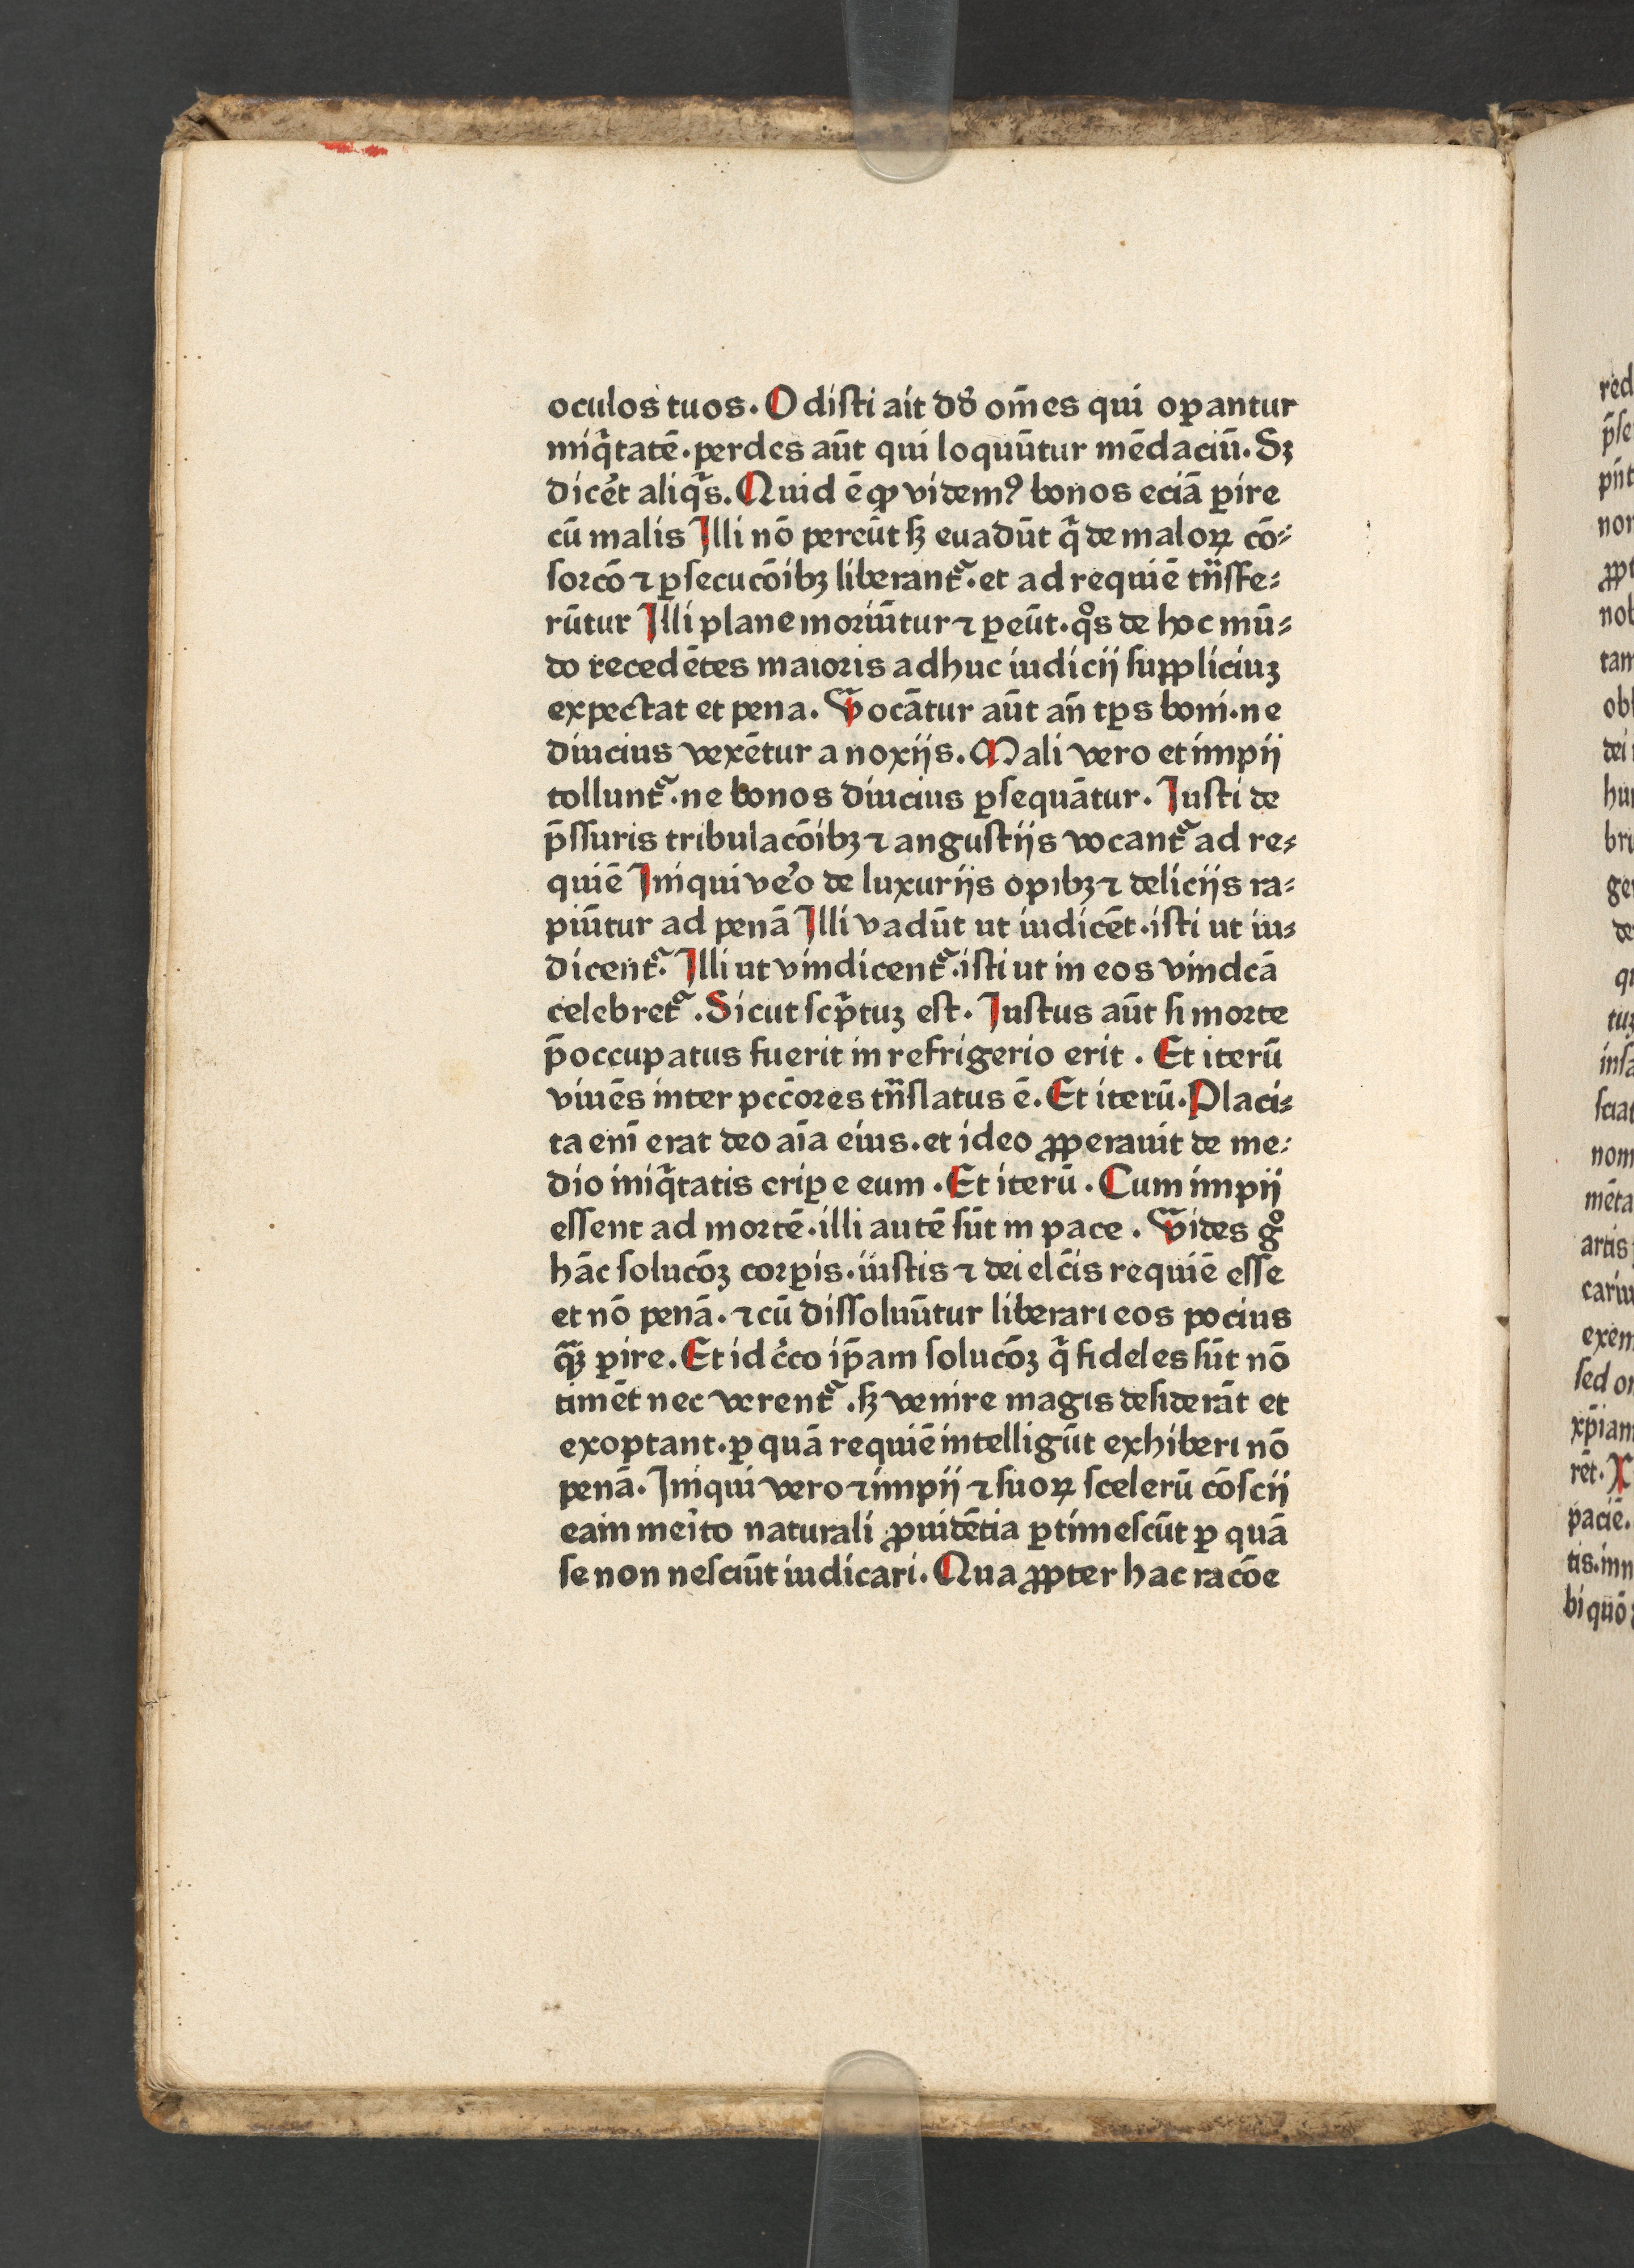 oculos tuos. Odisti ait dn̄s om̄es qui oꝑantur
iniq̄tatē. perdes aūt qui loquūtur mēdaciū. Sꝫ
dicet aliq̄s. Quid ē ꝙ videmꝰ bonos eciā ꝑire
cū malis Illi nō pereūt sꝫ euadūt q̄ de maloꝝ cō⸗
sorcō ⁊ ꝑsecucōibꝫ liberantᷓ. et ad requiē tn̄sfe⸗
rūtur Illi plane moriūtur ⁊ ꝑeūt. qͦs de hoc mū⸗
do recedētes maioris adhuc iudicij suppliciuꝫ
expectat et pena. Vocātur aūt an̄ tꝑs boni. ne
diucius vexētur a noxijs. Mali vero et impij
tolluntᷓ. ne bonos diucius ꝑsequātur. Iusti de
p̄ssuris tribulacōibꝫ ⁊ angustijs vocantᷓ ad re⸗
quiē Iniqui vero de luxurijs opibꝫ ⁊ delicijs ra⸗
piūtur ad penā Illi vadūt ut iudicēt. isti ut iu⸗
dicentᷓ. Illi ut vindicentᷓ. isti ut in eos vindcā
celebretᷓ. Sicut scp̄tuꝫ est. Iustus aūt si morte
p̄occupatus fuerit in refrigerio erit. Et iterū
viuēs inter pcc̄ores tn̄slatus ē. Et iterū. Placi⸗
ta eni erat deo aīa eius. et ideo ꝓperauit de me⸗
dio iniq̄tatis eriꝑe eum. Et iterū. Cum impij
essent ad mortē. illi autē sūt in pace. Vides gͦ
hāc solucōꝫ corꝑis. iustis ⁊ dei elc̄is requiē esse
et nō penā. ⁊ cū dissoluūtur liberari eos pocius
qᷓꝫ ꝑire. Et idc̄co ip̄am solucōꝫ q̄ fideles sūt nō
timēt nec verentᷓ. sꝫ venire magis desiderāt et
exoptant. ꝑ quā requiē intelligūt exhiberi nō
penā. Iniqui vero ⁊ impij ⁊ suoꝝ scelerū cōscij
eam meīto naturali ꝓuidētia ꝑtimescūt ꝑ quā
se non nesciūt iudicari. Qua ꝓpter hac racōe